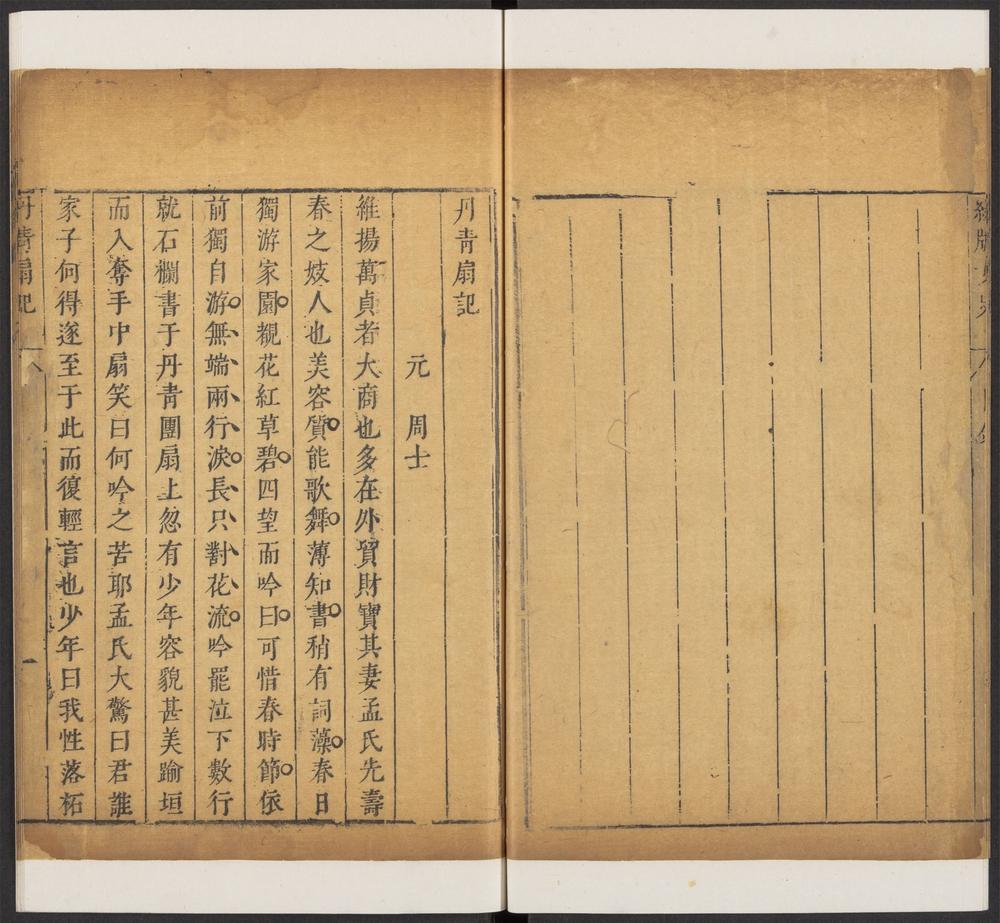 丹青扇記
元 周士
維揚萬貞者大商也多在外貿財寶其妻孟氏先壽
春之妓人也美容質能歌舞薄知書稍有詞藻春日
獨游家園覩花紅草碧四望而吟曰可惜春時節依
前獨自游無端兩行淚長只對花流吟罷泣下數行
就石欄書于丹青團扇上忽有少年容貌甚美踰垣
而入奪手中扇笑曰何吟之苦耶孟氏大驚曰君誰
家子何得遂至于此而復輕言也少年曰我性落柘
丹青扇記 一